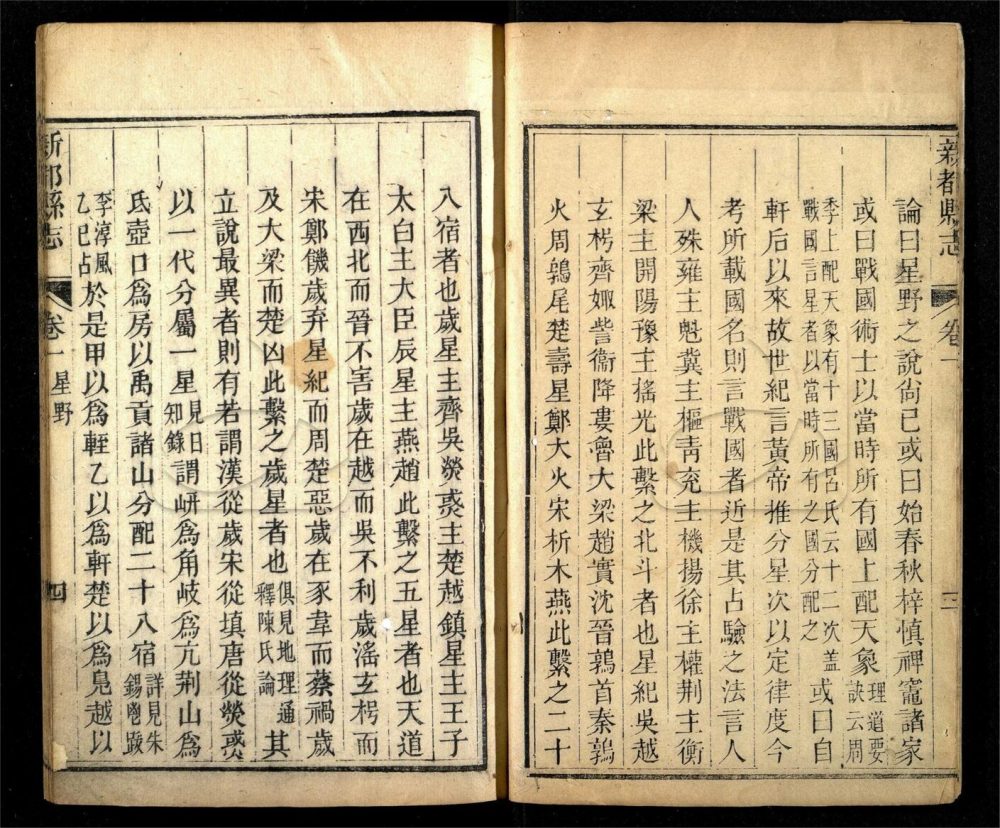 新都縣志
卷一
論曰星野之說尚已或曰始春秋梓慎禆竈諸家
或曰戰國術士以當時所有國上配天象理道要訣云周
季上配天象有十三國呂氏云十二次蓋戰國言星者以當時所有之國分配之或曰自
軒后以來故世紀言黃帝推分星次以定律度今
考所載國名則言戰國者近是其占驗之法言人
人殊雍主魁冀主樞青兖主機揚徐主權荆主衡
梁主開陽豫主搖光此繫之北斗者也星紀吳越
玄枵齊娵訾衞降婁魯大梁趙實沈晉鶉首秦鶉
火周鶉尾楚壽星鄭大火宋析木燕此繫之二十
八宿者也歲星主齊吳熒惑主楚越鎮星主王子
太白主大臣辰星主燕趙此繫之五星者也天道
在西北而晉不害歲在越而吳不利歲滛玄枵而
宋鄭饑歲弃星紀而周楚惡歲在豕韋而蔡禍歲
及大梁而楚凶此繫之歲星者也俱見地理通釋陳氏論其
立說最異者則有若謂漢從歲宋從填唐從熒惑
以一代分屬一星見日知錄謂岍爲角岐爲亢荆山爲
氐壺口爲房以禹貢諸山分配二十八宿詳見朱錫鬯跋
李淳風乙巳占於是甲以爲輊乙以爲軒楚以爲鳧越以
新都縣志
卷一 星野
四